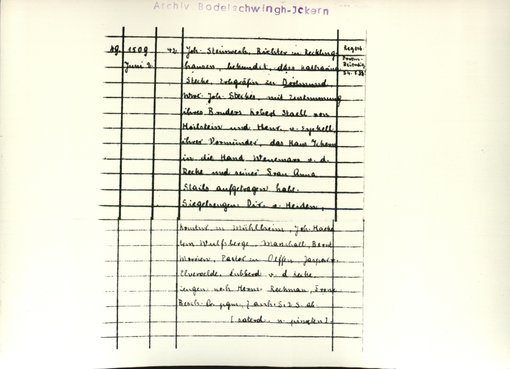 Archiv Bodelschwingh-Ickern
1509 42. Joh. Steinweck, Richter in Reckling-
Juni 2. hausen, bekundet, dass Katharina
Stecke, Erbgräfin zu Dortmund,
Wwe. Joh. Steckes, mit Zustimmung
ihres Bruders Robert Staell von
Holstein und Henr. v. Eyckell,
ihrer Vormünder, das Haus Ickern
in die Hand Wennemars v. d.
Recke und seiner Frau Anna
Stails aufgetragen habe.
Siegelzeugen: Dir. v. Heiden,
Komtur in Mühlheim, Joh. Hacke
Wulfsberge, Marschall, Bernt
Morrien, Pastor in Jasper v.
Elverfelde, Lubbert v. d. Recke
zeugen noch Herm. Reckman,
Besch. Or. pgm., 7 anh. S. 2 S. ab